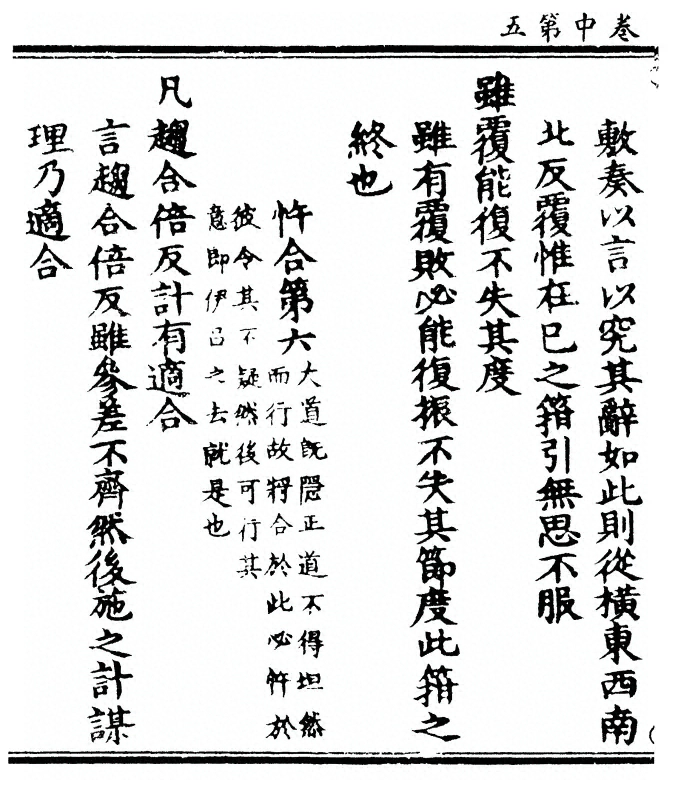 卷中第五
敷奏以言以究其辭如此則從橫東西南
北反覆惟在已之箝引無思不服
雖覆能復不失其度
雖有覆敗必能復振不失其節度此箝之
終也
忤合第六大道既隱正道不得坦然
而行故將合於此必忤於
彼令其不疑然後可行其
意即伊呂之去就是也
凡趨合倍反計有適合
言趨合倍反雖參差不齊然後施之計謀
理乃適合